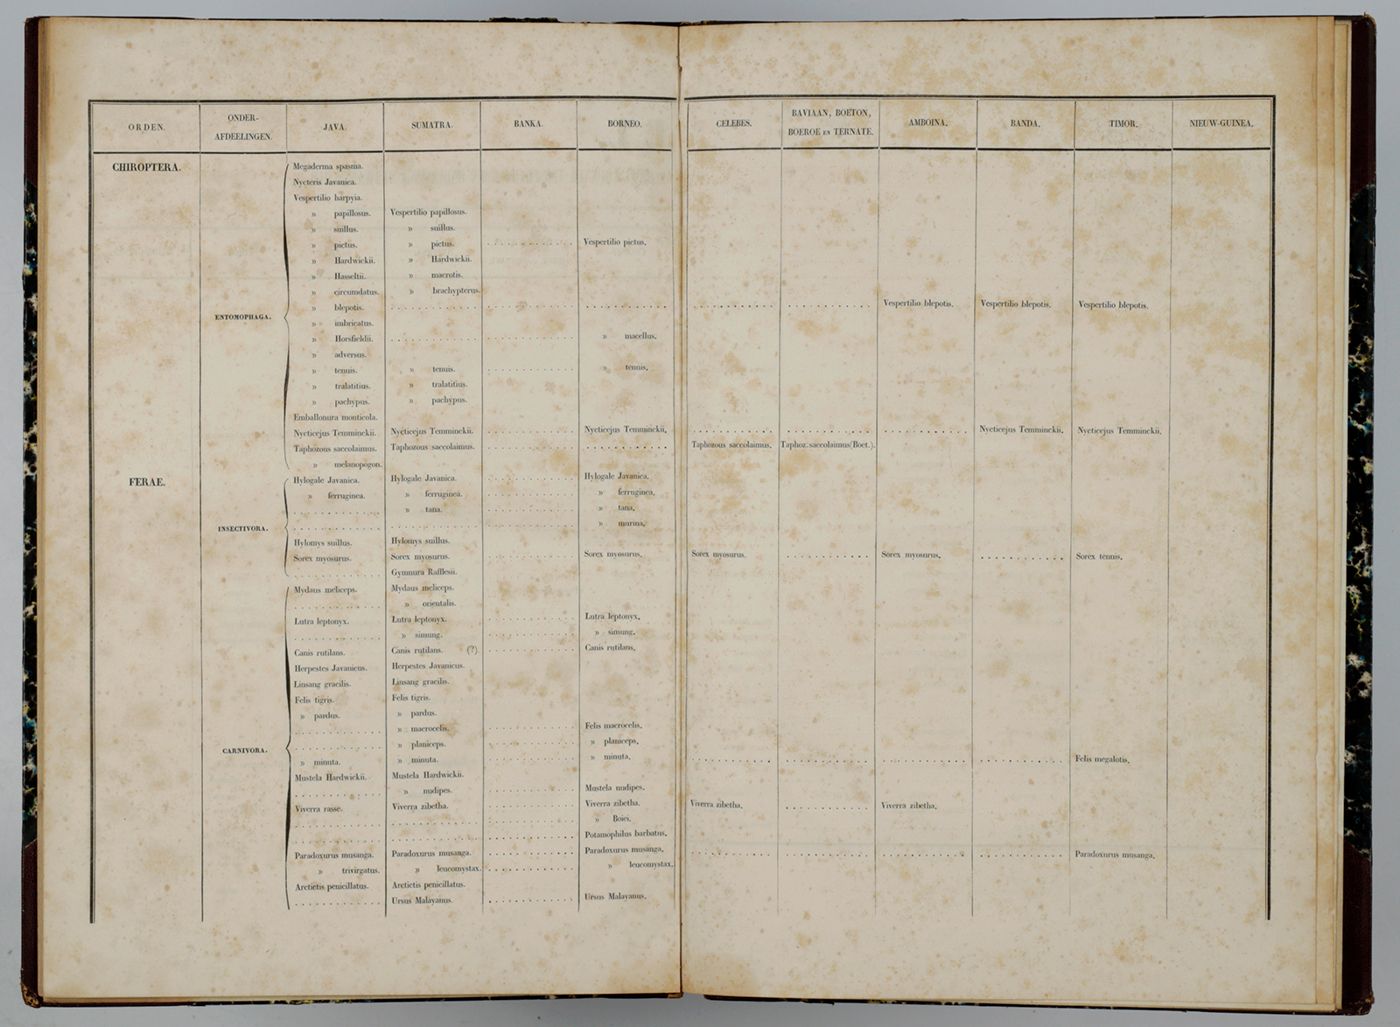 ORDEN. ONDER-AFDEELINGEN. JAVA. SUMATRA. BANKA. BORNEO. CELEBES. BAVIAAN, BOETON, BOEROE EN TERNATE. AMBOINA. BANDA. TIMOR. NIEUW-GUINEA.
CHIROPTERA. Megaderma spasma.
Nycteris Javanica.
Vespertilio harpyia.
» papillosus. Vespertilio papillosus.
» suillus. » suillus.
» pictus. » pictus. . . . . . . . . . . . Vespertilio pictus.
» Hardwickii. » Hardwickii.
» Hasseltii. » macrotis.
» circumdatus. » brachypterus.
» blepotis. . . . . . . . . . . . . . . . . . . . . . . . . . . . . . . . . . . . . . . . . . . . . . . . Vespertilio blepotis. Vespertilio blepotis. Vespertilio blepotis.
ENTOMOPHAGA. » imbricatus.
» Horsfieldii. . . . . . . . . . . . . . . . . . . . . . » macellus.
» adversus.
» tenuis. » tenuis. . . . . . . . . . . . » tenuis.
» tralatitius. » tralatitius.
» pachypus. » pachypus.
Emballonura monticola.
Nycticejus Temminckii. Nycticejus Temminckii. . . . . . . . . . . . Nycticejus Temminckii. . . . . . . . . . . . . . . . . . . . . . . . . . . . . . . Nycticejus Temminckii. Nycticejus Temminckii.
Taphozous saccolaimus. Taphozous saccolaimus. . . . . . . . . . . . . . . . . . . . . . Taphozous saccolaimus. Taphoz. saccolaimus (Boet.).
» melanopogon.
FERAE. Hylogale Javanica. Hylogale Javanica. . . . . . . . . . . . Hylogale Javanica.
» ferruginea. » ferruginea. . . . . . . . . . . . » ferruginea.
. . . . . . . . . . » tana. . . . . . . . . . . . » tana.
INSECTIVORA. . . . . . . . . . . . . . . . . . . . . . . . . . . . . . . » murina.
Hylomys suillus. Hylomys suillus.
Sorex myosurus. Sorex myosurus. . . . . . . . . . . . Sorex myosurus. Sorex myosurus. . . . . . . . . . . Sorex myosurus. . . . . . . . . . . Sorex tenuis.
. . . . . . . . . . Gymnura Rafflesii.
Mydaus meliceps. Mydaus meliceps.
. . . . . . . . . . » orientalis.
Lutra leptonyx. Lutra leptonyx. . . . . . . . . . . . Lutra leptonyx.
. . . . . . . . . . » simung. . . . . . . . . . . . » simung.
Canis rutilans. Canis rutilans. (?) . . . . . . . . . . Canis rutilans.
Herpestes Javanicus. Herpestes Javanicus.
Linsang gracilis. Linsang gracilis.
Felis tigris. Felis tigris.
» pardus. » pardus.
. . . . . . . . . . » macrocelis. . . . . . . . . . . . Felis macrocelis.
CARNIVORA. . . . . . . . . . . » planiceps. . . . . . . . . . . . » planiceps.
» minuta. » minuta. . . . . . . . . . . . » minuta. . . . . . . . . . . . . . . . . . . . . . . . . . . . . . . . . . . . . . . . . Felis megalotis.
Mustela Hardwickii. Mustela Hardwickii.
. . . . . . . . . . » nudipes. . . . . . . . . . . . Mustela nudipes.
Viverra rasse. Viverra zibetha. . . . . . . . . . . . Viverra zibetha. Viverra zibetha. . . . . . . . . . . Viverra zibetha.
. . . . . . . . . . . . . . . . . . . . . . . . . . . . . . » Boiei.
. . . . . . . . . . . . . . . . . . . . . . . . . . . . . . Potamophilus barbatus.
Paradoxurus musanga. Paradoxurus musanga. . . . . . . . . . . . Paradoxurus musanga. . . . . . . . . . . . . . . . . . . . . . . . . . . . . . . . . . . . . . . . . Paradoxurus musanga.
» trivirgatus. » leucomystax. . . . . . . . . . . . » leucomystax.
Arctictis penicillatus. Arctictis penicillatus.
. . . . . . . . . . Ursus Malayanus. . . . . . . . . . . . Ursus Malayanus.